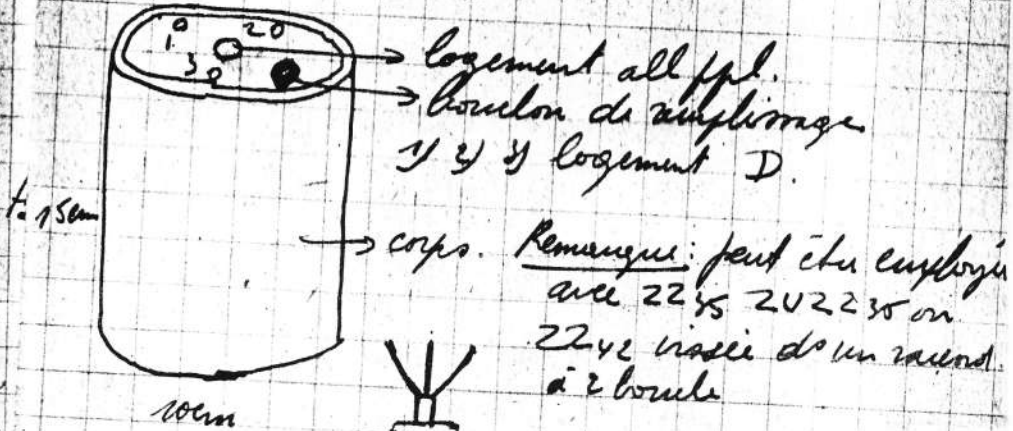 1° 2° 3°
logement all ppl.
bouchon de remplissage
1) 2) 3) logement D.
15cm
corps. Remarque: peut être employée
avec 2235 ZUZ 235 ou
2242 vissée ds un raccord
à 2 boucle
10cm